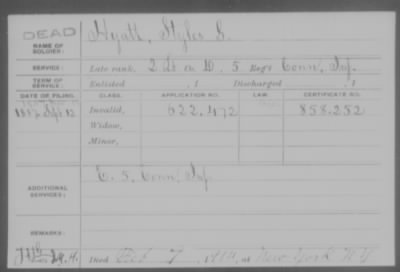 DEAD
NAME OF SOLDIER: Hyatt, Styles S.
SERVICE: Late rank, 2 Lt Co D, 5 Reg't Conn. Inf.
TERM OF SERVICE: Enlisted , 1 Discharged , 1
DATE OF FILING. CLASS. APPLICATION NO. LAW. CERTIFICATE NO.
1887 Sept 12 Invalid, 622.472 858.252
Widow,
Minor,
ADDITIONAL SERVICES: C. 5. Conn. Inf.
REMARKS:
Died Feb 7, at New York N.Y